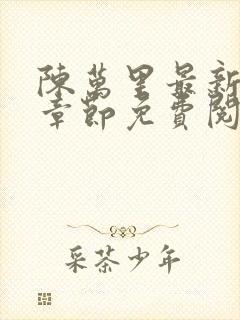 陳萬里最新
章節免費閱
采茶少年